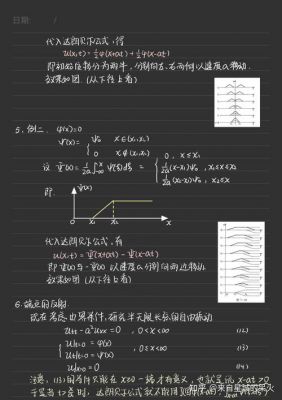 日期： /
代入达朗贝尔公式，得
u(x,t) = ½φ(x+at) + ½φ(x-at)
即初始位移分为两半，分别向左、右两侧以速度a移动.
效果如图（从下往上看）
5. 例二. φ(x)=0
ψ(x) = { ψ₀ x∈(x₁,x₂)
0 x∉(x₁,x₂)
设 Ψ(x) = 1/2a ∫ ψ(ξ)dξ = { 0, x≤x₁
1/2a (x-x₁)ψ₀, x₁≤x≤x₂
1/2a (x₂-x₁)ψ₀, x₂≤x
即
Ψ(x)
x₁ x₂ x
代入达朗贝尔公式，有
u(x,t) = Ψ(x+at) - Ψ(x-at)
即 Ψ(x)与-Ψ(x) 以速度a分别向两边移动.
效果如图（从下往上看）
6. 端点的反射
现在考虑边界条件，研究半无限长弦的自由振动
utt - a²uxx = 0, 0<x<∞ (12)
u|t=0 = φ(x)
ut|t=0 = ψ(x) , 0≤x<∞ (13)
u|x=0 = 0 (14)
注意，(13)的条件只能在 x≥0 一端才有意义，也就是说 x-at>0
知乎